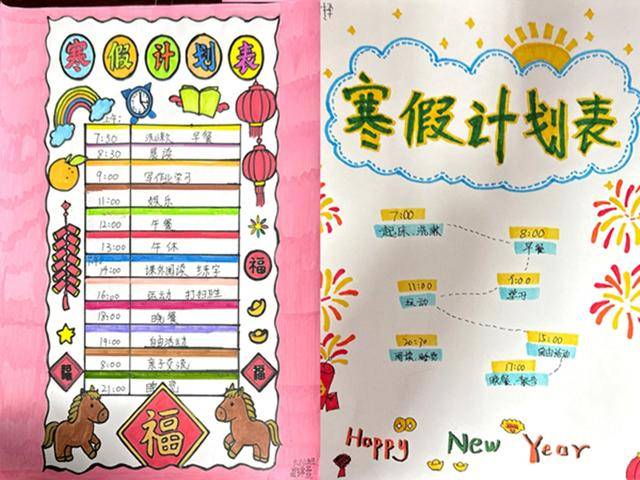 寒假计划表
上午:
7:30 洗漱 早餐
8:30 晨读
9:00 写作业学习
11:00 娱乐
12:00 午餐
13:00 午休
14:00 课外阅读 练字
16:00 运动 打扫卫生
18:00 晚餐
19:00 自由活动
8:00 亲子交流
21:00
福
福
福
福
寒假计划表
7:00
起床、洗漱
8:00
早餐
学习
11:00
运动
15:00
自由活动
17:00
20:30
Happy New Year